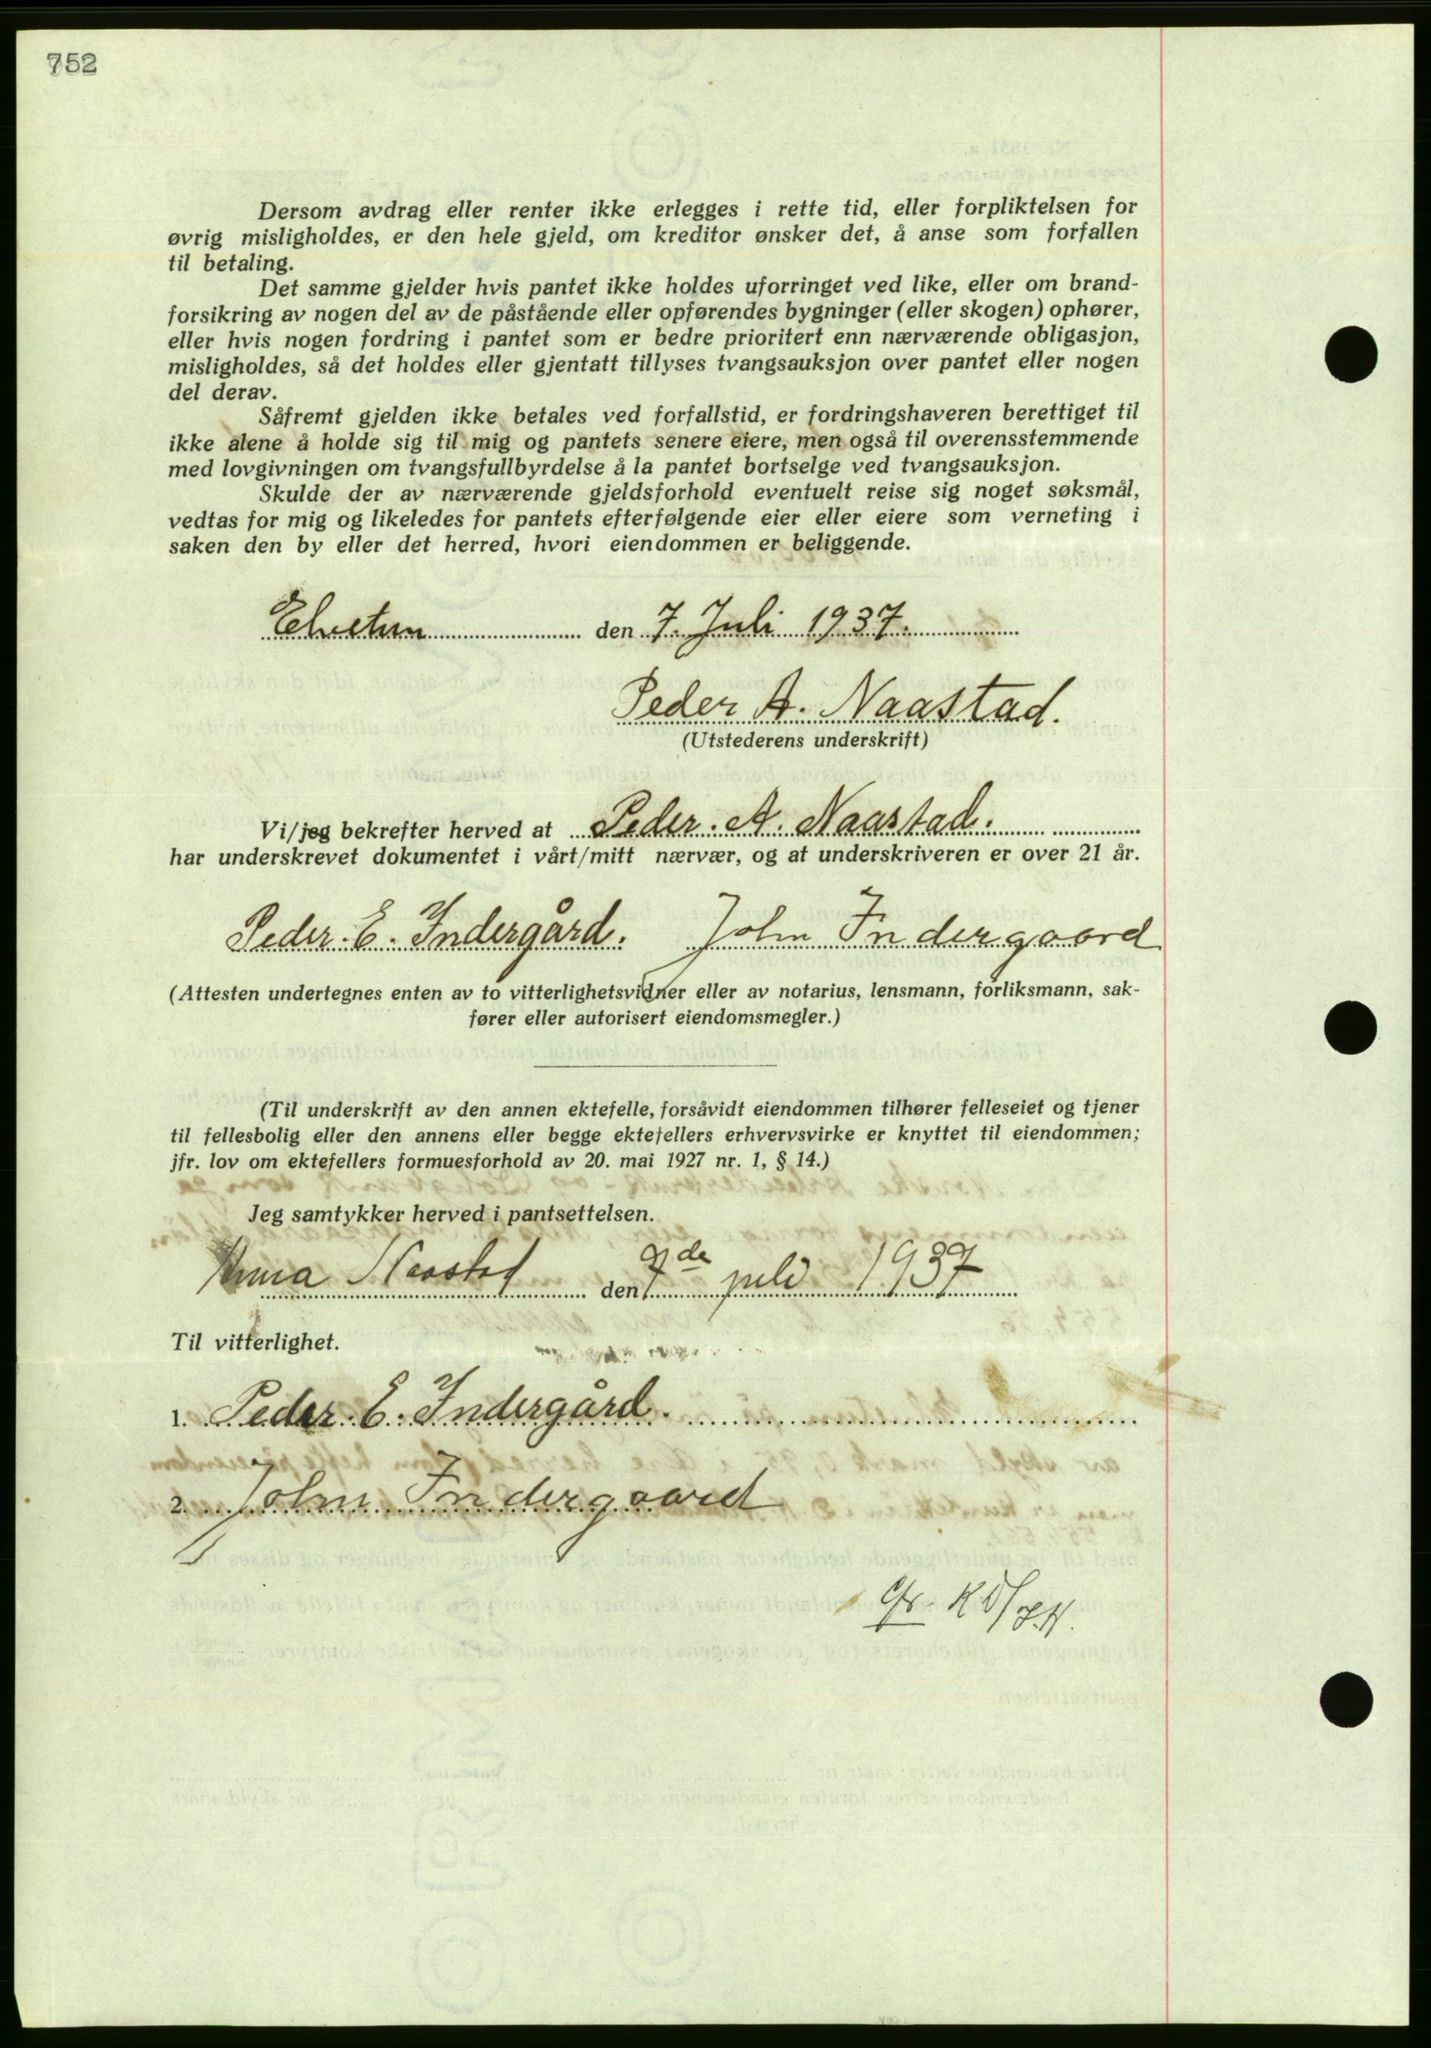 752
Dersom avdrag eller renter ikke erlegges i rette tid, eller forpliktelsen for
øvrig misligholdes, er den hele gjeld, om kreditor ønsker det, å anse som forfallen
til betaling.
Det samme gjelder hvis pantet ikke holdes uforringet ved like, eller om brand-
forsikring av nogen del av de påstående eller opførendes bygninger (eller skogen) ophører,
eller hvis nogen fordring i pantet som er bedre prioritert enn nærværende obligasjon,
misligholdes, så det holdes eller gjentatt tillyses tvangsauksjon over pantet eller nogen
del derav.
Såfremt gjelden ikke betales ved forfallstid, er fordringshaveren berettiget til
ikke alene å holde sig til mig og pantets senere eiere, men også til overensstemmende
med lovgivningen om tvangsfullbyrdelse å la pantet bortselge ved tvangsauksjon.
Skulde der av nærværende gjeldsforhold eventuelt reise sig noget søksmål,
vedtas for mig og likeledes for pantets efterfølgende eier eller eiere som verneting i
saken den by eller det herred, hvori eiendommen er beliggende.
Elvetun den 7. Juli 1937.
Peder A. Naastad.
(Utstederens underskrift)
Vi/jeg bekrefter herved at Peder. A. Naastad.
har underskrevet dokumentet i vårt/mitt nærvær, og at underskriveren er over 21 år.
Peder. E. Indergård. John Indergaard
(Attesten undertegnes enten av to vitterlighetsvidner eller av notarius, lensmann, forliksmann, sak-
fører eller autorisert eiendomsmegler.)
(Til underskrift av den annen ektefelle, forsåvidt eiendommen tilhører felleseiet og tjener
til fellesbolig eller den annens eller begge ektefellers erhvervsvirke er knyttet til eiendommen;
jfr. lov om ektefellers formuesforhold av 20. mai 1927 nr. 1, § 14.)
Jeg samtykker herved i pantsettelsen.
Anna Naastad den 7de juli 1937
Til vitterlighet.
1. Peder. E. Indergård.
2. John Indergaard